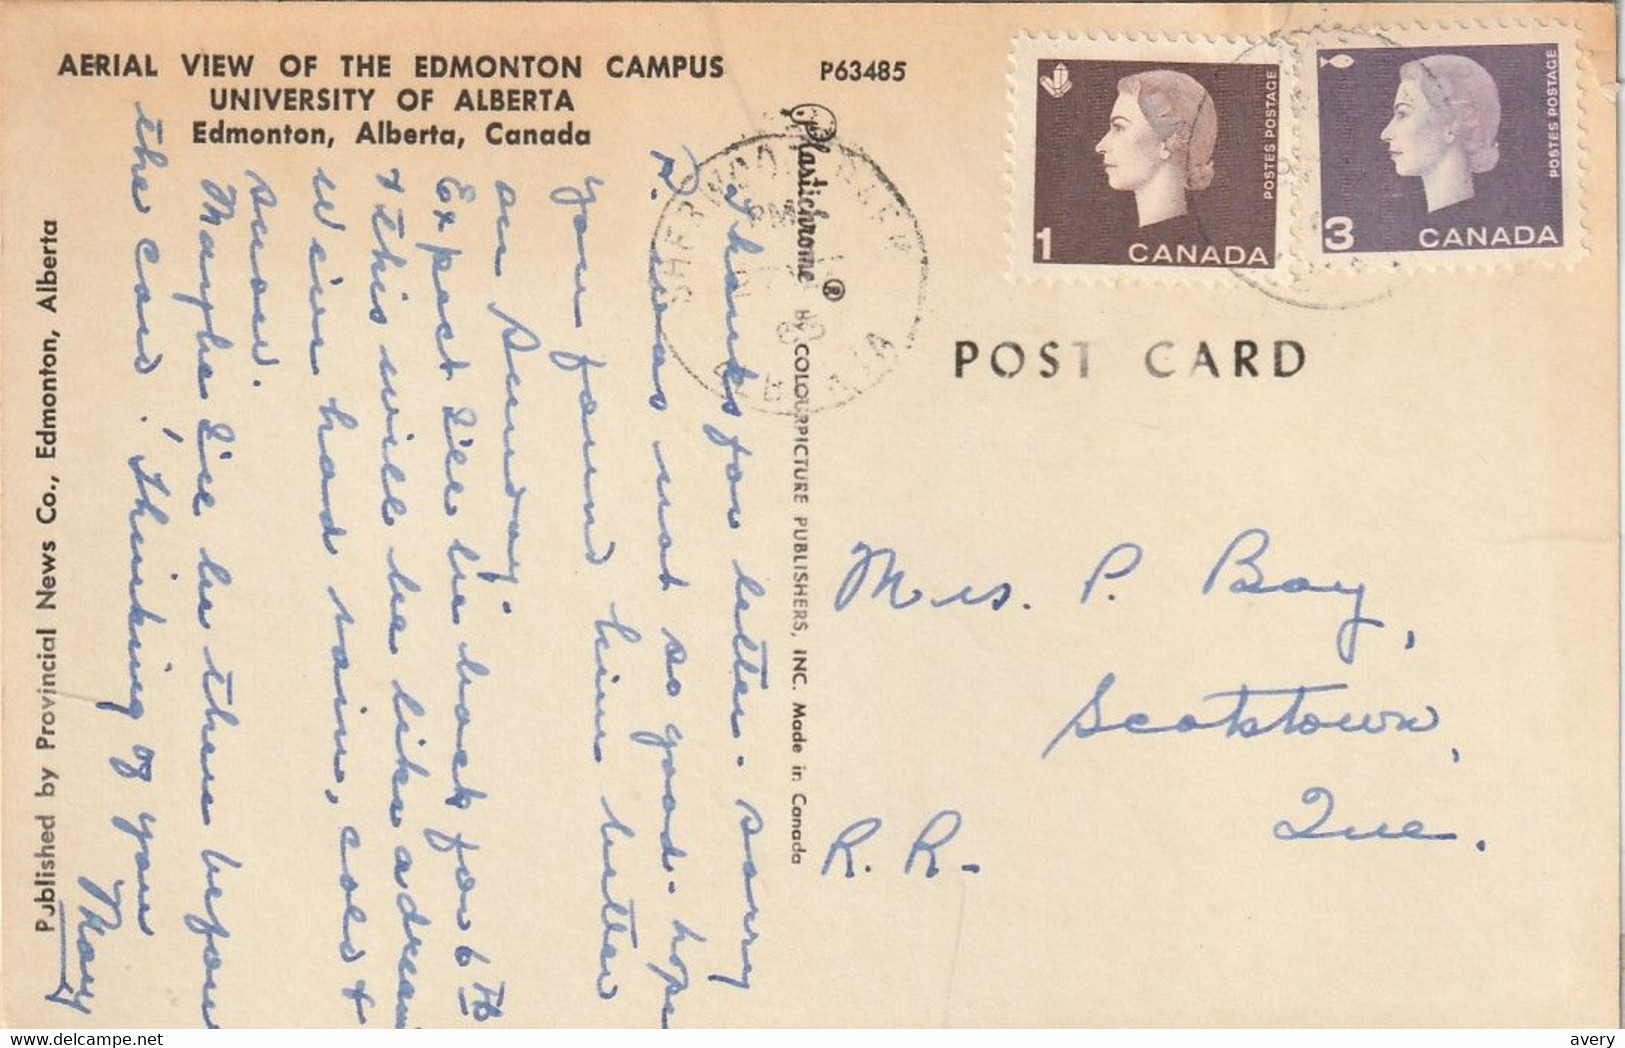 AERIAL VIEW OF THE EDMONTON CAMPUS
UNIVERSITY OF ALBERTA
Edmonton, Alberta, Canada
P63485
Published by Provincial News Co., Edmonton, Alberta
Plastichrome® by COLOURPICTURE PUBLISHERS, INC. Made in Canada
POST CARD
1 CANADA
POSTES POSTAGE
3 CANADA
POSTES POSTAGE
SHERWOOD
PM
Thanks for letter. Sorry
P. was not so good - hope
you found him better
on Sunday.
Expect I'll be back for 6th
& this will be like a dream
We've had rain, cold &
snow.
Maybe I'll be there before
the card. Thinking of you
May
Mrs. P. Bay,
Scotstown,
Que.
R. R.
avery